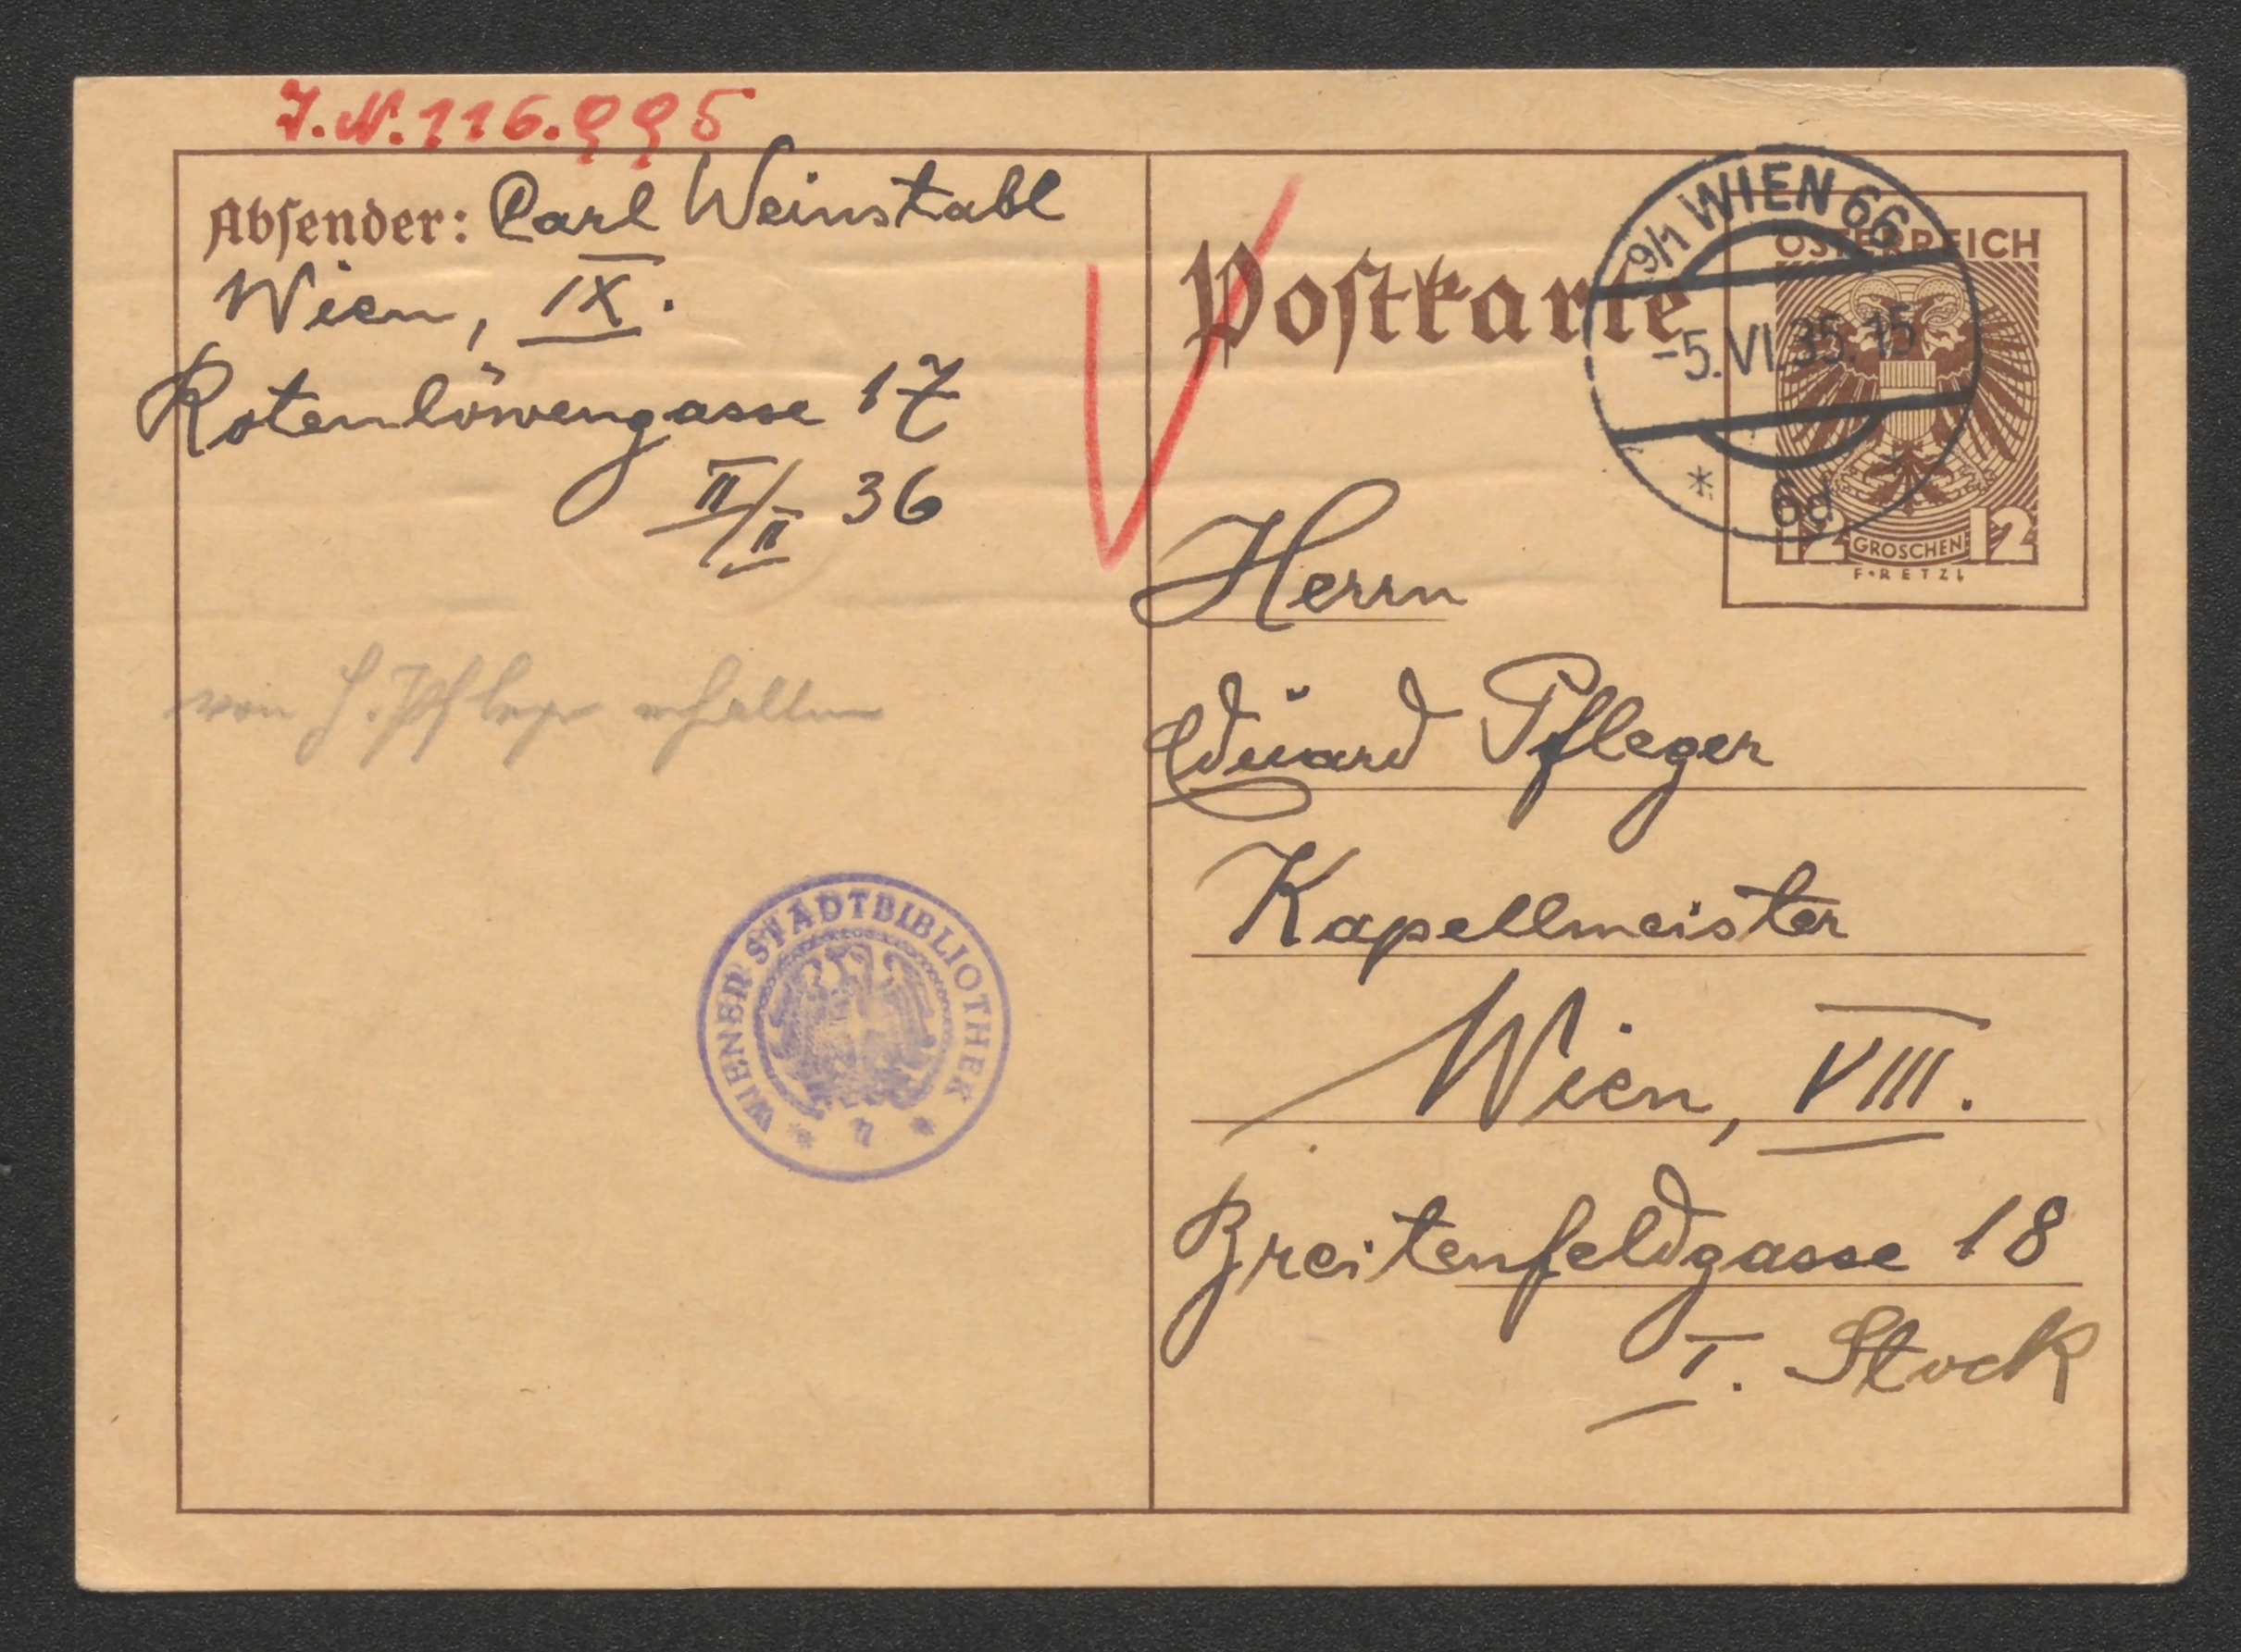 J.N. 116.995
Absender: Carl Weinstabl
Wien, IX.
Rotenlöwengasse 17
II/II 36
von H. Pfleger erhalten
WIENER STADTBIBLIOTHEK
Postkarte
9/1 WIEN 66
-5.VI.35.15
* 6d
ÖSTERREICH
12 GROSCHEN 12
F·RETZL
Herrn
Eduard Pfleger
Kapellmeister
Wien, VIII.
Breitenfeldgasse 18
I. Stock